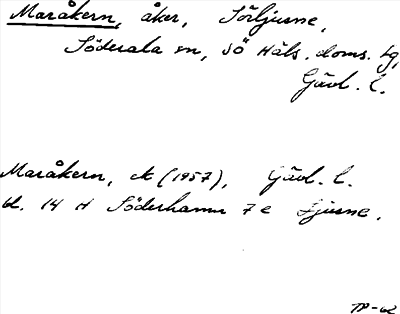 Maråkern, åker, Sörljusne,
Söderala sn, SÖ Häls. doms. tg,
Gävl. l.
Maråkern, ek (1957), Gävl. l.
bl. 14 H Söderhamn 7 e Ljusne.